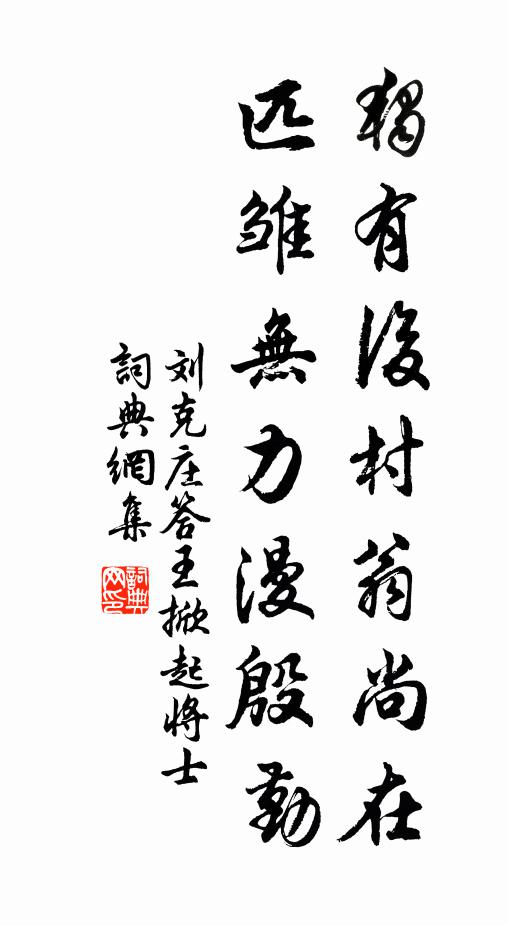 獨有後村翁尚在
匹雏無力漫殷勤
刘克庄答王掀起将士
詞典網集
詞典網印